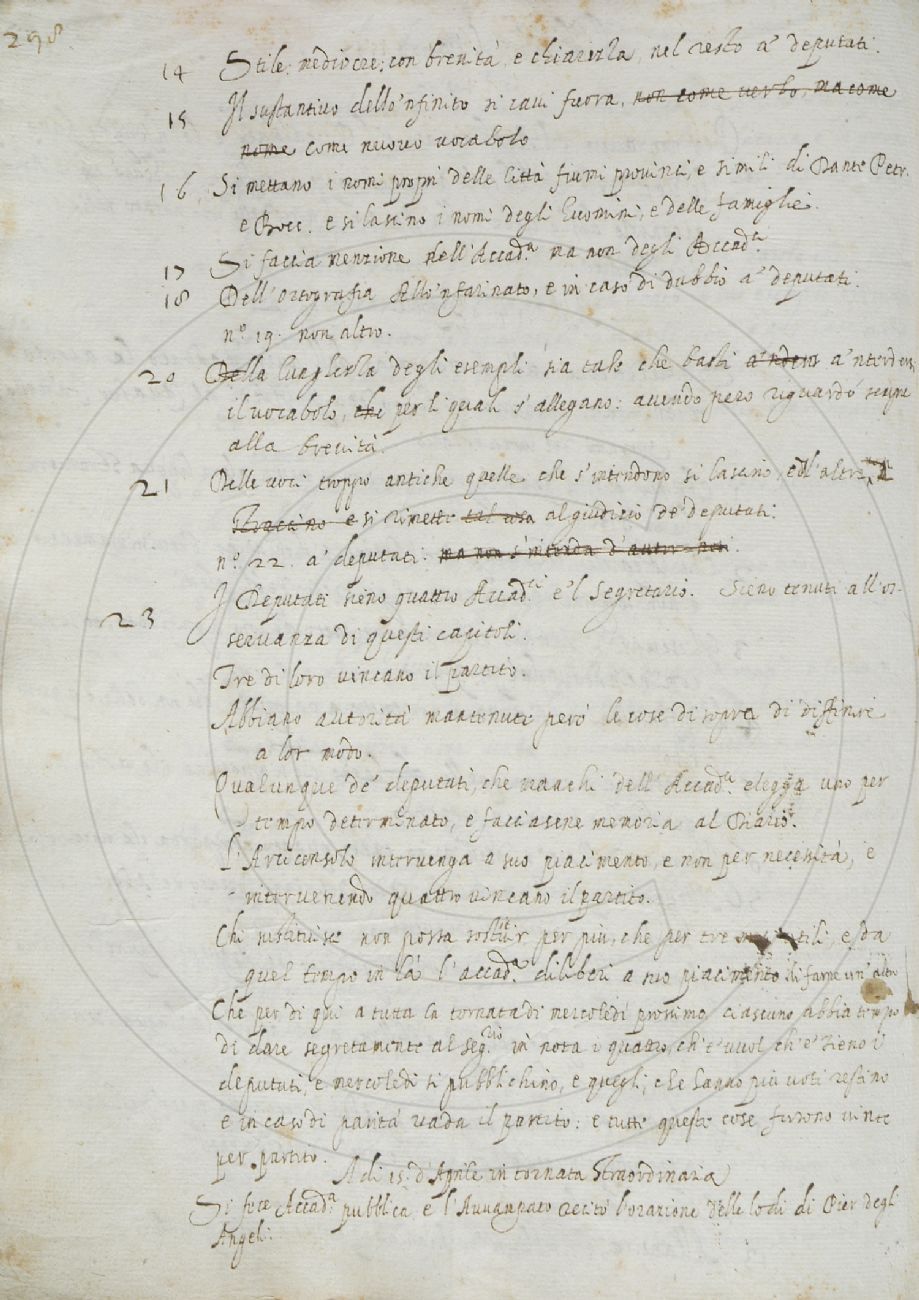 298
14 Stile: mediocre; con breuità, e chiarezza, nel resto a' deputati.
15 Il sustantiuo dello 'nfinito si caui fuora, non come uerbo, ma come
nome come nuouo uocabolo
16 Si mettano i nomi propri delle Città fiumi prouinci, e simili di Dante Petr.
e Bocc. e si lascino i nomi degli huomini, e delle famiglie.
17 Si faccia menzione dell'Accad.a ma non degli Accad.ci
18 Dell'ortografia allo 'nfarinato, e in caso di dubbio a' deputati.
n.o 19. non altro.
20 Della lunghezza degli esempli sia tale che basti a 'ntender
il uocabolo, che per li quali s'allegano: auendo però riguardo sempre
alla breuità.
21 Delle uoci troppo antiche quelle che s'intendono si lascino, e l'altre
e si rimetta al giudizio de' deputati.
n.o 22. a' deputati. ma non s'intenda d'autor
23 I Deputati sieno quattro Accad.ci e 'l segretario. Sieno tenuti all'os-
seruanza di questi capitoli.
Tre di loro uincano il partito.
Abbiano autorità mantenute però le cose di sopra di diffinire
a lor modo.
Qualunque de' deputati, che manchi dell'Accad.a elegga uno per
tempo determinato, e facciasene memoria al Diario.
L'Arciconsolo interuenga a suo piacimento, e non per necessità, e
interuenendo quattro uincano il partito.
Chi sustituisce non possa sostituir per più, che per tre utili, e da
quel tempo in là l'accad.a diliberi a suo piacimento di farne un' altro
Che per di qui a tutta la tornata di mercoledì prossimo ciascuno abbia tempo
di dare segretamente al seg.rio in nota i quattro, ch'e' vuol ch'e' sieno i
deputati, e mercoledì si pubblichino, e quegli, che hanno più uoti restino
e in caso di parità uada il partito: e tutte queste cose furono uinte
per partito.
A di 15. d'Aprile in tornata straordinaria
Si fece Accad.a pubblica e l'Auuampato recitò l'orazione delle lodi di Pier degli
Angeli.